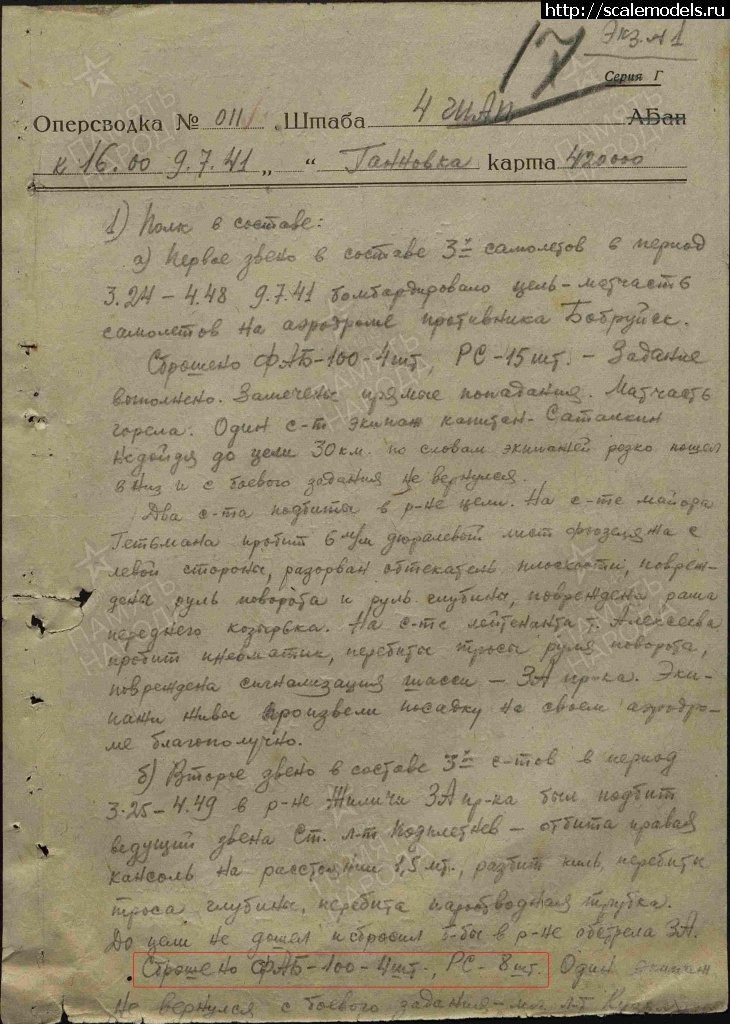 http://scalemodels.ru
Экз. №1
17
Серия Г
Оперсводка № 011 Штаба 4 ШАП АБап
к 16.00 9.7.41 „ “ Ганновка карта 420000
1) Полк в составе:
а) Первое звено в составе 3х самолетов в период
3.24 – 4.48 9.7.41 бомбардировало цель – матчасть
самолетов на аэродроме противника Бобруйск.
Сброшено ФАБ-100-4шт, РС-15шт. – Задание
выполнено. Замечены прямые попадания. Матчасть
горела. Один с-т экипаж капитан Саталкин
недойдя до цели 30км. по словам экипажей резко пошел
вниз и с боевого задания не вернулся.
Два с-та подбиты в р-не цели. На с-те майора
Гетьмана пробит 6 м/м дюралевый лист фюзеляжа с
левой стороны, разорван обтекатель плоскости, повреж-
дены руль поворота и руль глубины, повреждена рама
переднего козырька. На с-те лейтенанта т. Алексеева
пробит пнеоматик, перебиты тросы руля поворота,
повреждена сигнализация шасси – ЗА пр-ка. Эки-
пажи живы произвели посадку на своем аэродро-
ме благополучно.
б) Второе звено в составе 3х с-тов в период
3.25 – 4.49 в р-не Жиличи ЗА пр-ка был подбит
ведущий звена Ст. л-т Подплетнев – отбита правая
консоль на расстоянии 1,5 мт., разбит киль, перебиты
троса глубины, перебита трубка.
До цели не дошел и сбросил б-бы в р-не обстрела ЗА.
Сброшено ФАБ-100-4шт., РС-8шт. Один экипаж
не вернулся с боевого задания – л-т